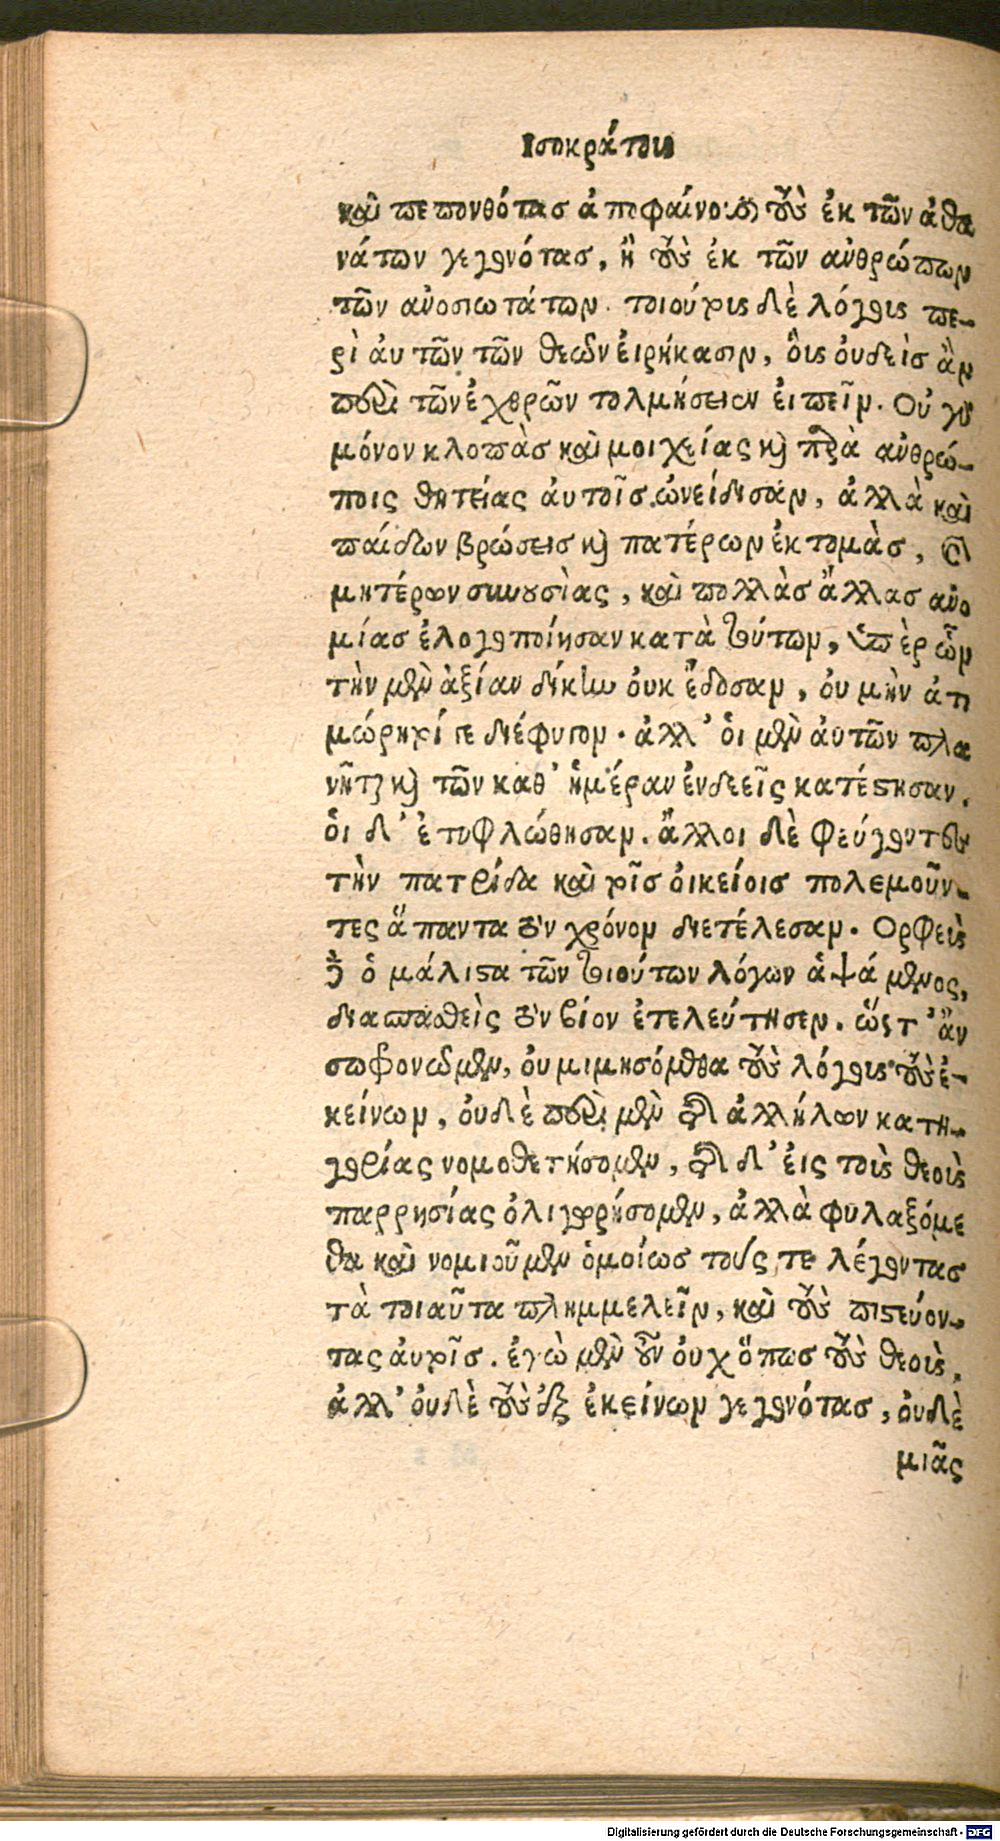 Ισοκράτους
καὶ πεπονθότας ἀποφαίνουσι τοὺς ἐκ τῶν ἀθα
νάτων γεγονότας, ἢ τοὺς ἐκ τῶν ἀνθρώπων
τῶν ἀνοσιωτάτων. τοιούτους δὲ λόγους πε-
ρὶ ἀυτῶν τῶν θεῶν ἐιρήκασιν, ὅιους ὀυδεὶς ἂν
περὶ τῶν ἐχθρῶν τολμήσειεν ἐιπεῖν. Οὐ γὰρ
μόνον κλοπὰς καὶ μοιχείας καὶ παρὰ ἀνθρώ-
ποις θητείας ἀυτοῖς ὠνείδισαν, ἀλλὰ καὶ
παίδων βρώσεις καὶ πατέρων ἐκτομὰς, καὶ
μητέρων συνουσὶας, καὶ πολλὰς ἄλλας ἀνο
μίας ἐλογοποίησαν κατὰ τούτων, ὑπὲρ ὧν
τὴν μὲν ἀξίαν δίκην ὀυκ ἔδοσαν, ὀυ μὴν ἀτι
μώρητοί γε διέφυγον. ἀλλ' ὁι μὲν ἀυτῶν πλα
νῆται καὶ τῶν καθ' ἡμέραν ἐνδεεῖς κατέστησαν.
ὁι δ' ἐτυφλώθησαν. ἄλλοι δὲ φεύγοντες
τὴν πατρίδα καὶ τοῖς ὀικείοις πολεμοῦν-
τες ἅπαντα τὸν χρόνον διετέλεσαν. Ορφεὺς
δ' ὁ μάλιστα τῶν τοιούτων λόγων ἁψάμενος,
διασπασθεὶς τὸν βίον ἐτελεύτησεν. ὥστ' ἂν
σωφρονῶμεν, ὀυ μιμησόμεθα τοὺς λόγους τοὺς ἐ-
κείνων, ὀυδὲ περὶ μὲν τῆς ἀλλήλων κατη-
γορίας νομοθετήσομεν, τῆς δ' ἐις τοὺς θεοὺς
παρρησίας ὀλιγωρήσομεν, ἀλλὰ φυλαξόμε
θα καὶ νομιοῦμεν ὁμοίως τούς τε λέγοντας
τὰ τοιαῦτα πλημμελεῖν, καὶ τοὺς πιστεύον-
τας ἀυτοῖς. ἐγὼ μὲν οὖν ὀυχ ὅπως τοὺς θεοὺς,
ἀλλ' ὀυδὲ τοὺς ἐξ ἐκείνων γεγονότας, ὀυδὲ
μιᾶς
Digitalisierung gefördert durch die Deutsche Forschungsgemeinschaft - DFG